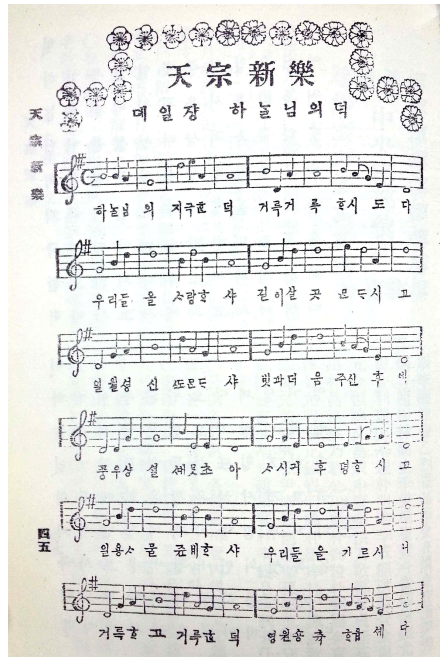 天宗新樂
뎨일쟝 하ᄂᆞᆯ님의덕
天宗新樂
하ᄂᆞᆯ님 의 지극ᄒᆞᆫ 덕 거륵거 륵 ᄒᆞ시 도 다
우리들 을 ᄉᆞ랑ᄒᆞ 샤 길이살 곳 ᄆᆞᆫᄃᆞ시 고
일월셩 신 ᄯᅩᄆᆞᆫᄃᆞ 샤 빗과더 음 주신 후 에
풍우상 셜 ᄯᅢ맛초 아 ᄉᆞ시귀 후 뎡ᄒᆞ 시 고
일용ᄉᆞ 물 쥰비ᄒᆞ 샤 우리들 을 기르시
거륵ᄒᆞ 고 거륵ᄒᆞᆫ 덕 영원송 츅 ᄒᆞ읍 세 다
四五